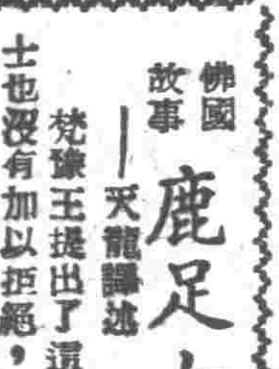 佛國
故事
鹿足
——天龍譯述
梵豫王提出了這
士也沒有加以拒絕，